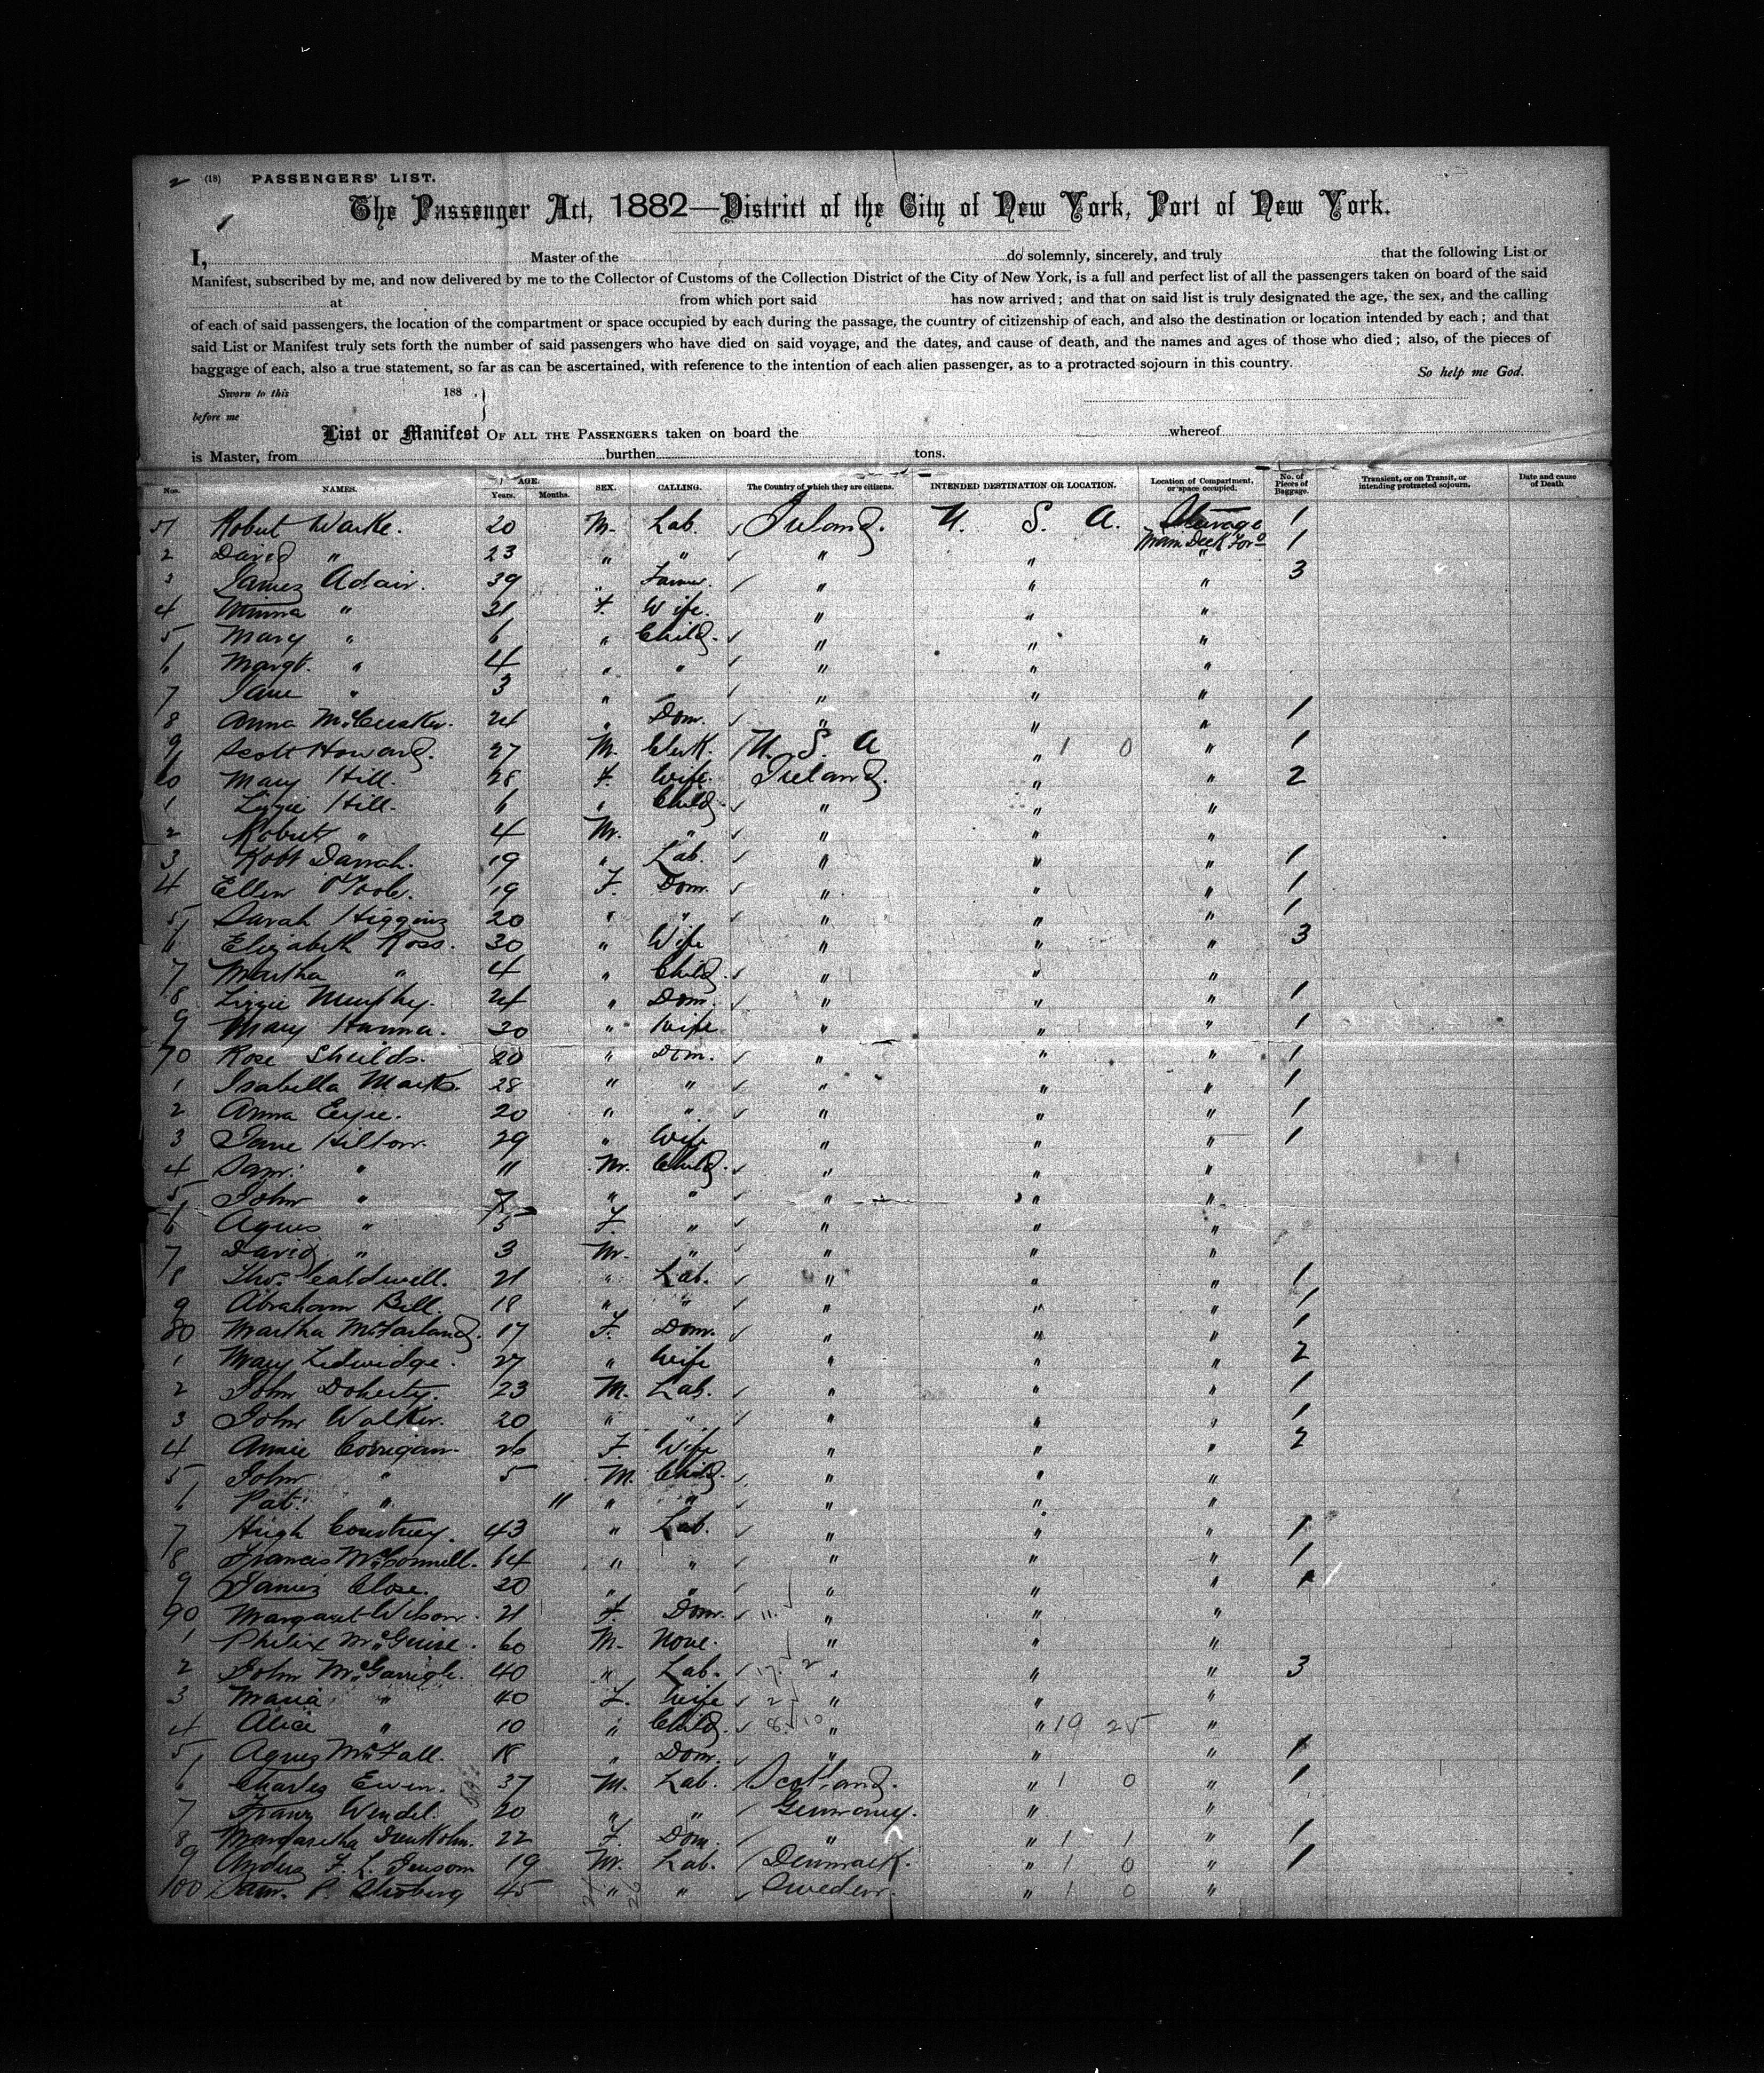 2 (18) PASSENGERS' LIST.
1
The Passenger Act, 1882—District of the City of New York, Port of New York.
I, Master of the do solemnly, sincerely, and truly that the following List or
Manifest, subscribed by me, and now delivered by me to the Collector of Customs of the Collection District of the City of New York, is a full and perfect list of all the passengers taken on board of the said
at from which port said has now arrived; and that on said list is truly designated the age, the sex, and the calling
of each of said passengers, the location of the compartment or space occupied by each during the passage, the country of citizenship of each, and also the destination or location intended by each; and that
said List or Manifest truly sets forth the number of said passengers who have died on said voyage, and the dates, and cause of death, and the names and ages of those who died; also, of the pieces of
baggage of each, also a true statement, so far as can be ascertained, with reference to the intention of each alien passenger, as to a protracted sojourn in this country. So help me God.
Sworn to this 188 . }
before me
List or Manifest OF ALL THE PASSENGERS taken on board the whereof
is Master, from burthen tons.
Nos. NAMES. AGE. Years. Months. SEX. CALLING. The Country of which they are citizens. INTENDED DESTINATION OR LOCATION. Location of Compartment, or space occupied. No. of Pieces of Baggage. Transient, or on Transit, or intending protracted sojourn. Date and cause of Death
51 Robert Warke. 20 M. Lab. Ireland. U. S. A. Steerage 1
Main Deck For'd
2 David " 23 " " " " " 1
3 James Adair. 39 " Farmer. " " " 3
4 Minna " 31 F. Wife. " " "
5 Mary " 6 " Child. " " "
6 Margt. " 4 " " " " "
7 Jane " 3 " " " " "
8 Anna McCusker. 24 " Dom. " " " 1
9 Scott Howard. 27 M. Clerk. U. S. A " 1 0 " 1
60 Mary Hill. 28 F. Wife. Ireland. " " 2
1 Lizzie Hill. 6 " Child " " "
2 Robert " 4 M. " " " "
3 Robt Darrah. 19 " Lab. " " " 1
4 Ellen O'Toole. 19 F. Dom. " " " 1
5 Sarah Higgins 20 " " " " " 1
6 Elizabeth Ross. 30 " Wife " " " 3
7 Martha " 4 " Child. " " "
8 Lizzie Murphy. 24 " Dom. " " " 1
9 Mary Hanna. 30 " Wife " " " 1
70 Rose Sheilds. 20 " Dom. " " " 1
1 Isabella Marks. 28 " " " " " 1
2 Anna Eyre. 20 " " " " " 1
3 Jane Hilton. 29 " Wife " " " 1
4 Saml. " 11 M. Child. " " "
5 John " 7 " " " " "
6 Agnes " 5 F. " " " "
7 David " 3 M. " " " "
8 Thos. Caldwell. 21 " Lab. " " " 1
9 Abraham Bell. 18 " " " " " 1
80 Martha McFarland. 17 F. Dom. " " " 1
1 Mary Ledwidge. 27 " Wife " " " 2
2 John Doherty. 23 M. Lab. " " " 1
3 John Walker. 20 " " " " " 1
4 Annie Corrigan. 26 F. Wife " " " 2
5 John " 5 M. Child. " " "
6 Pat. " 11 " " " " "
7 Hugh Courtney. 43 " Lab. " " " 1
8 Francis McConnell. 64 " " " " " 1
9 James Close. 20 " " " " " 1
90 Margaret Wilson. 21 F. Dom. 11 " " "
1 Philix McGuire. 60 M. None. " " "
2 John McGarrigle. 40 " Lab. 17 2 " " " 3
3 Maria " 40 F. Wife 2 " " "
4 Alice " 10 " Child. 8 10 " " 19 25 "
5 Agnes McFall. 18 " Dom. " " " 1
6 Charles Ewen. 37 M. Lab. Scotland. " 1 0 " 1
7 Franz Wendel. 20 " " Germany. " "
8 Margaretha Drenkohn. 22 F. Dom. " " 1 1 " 1
9 Anders F. L. Jensom 19 M. Lab. Denmark. " 1 0 " 1
100 Sam. P. Stroberg 45 " " Sweden. " 1 0 "